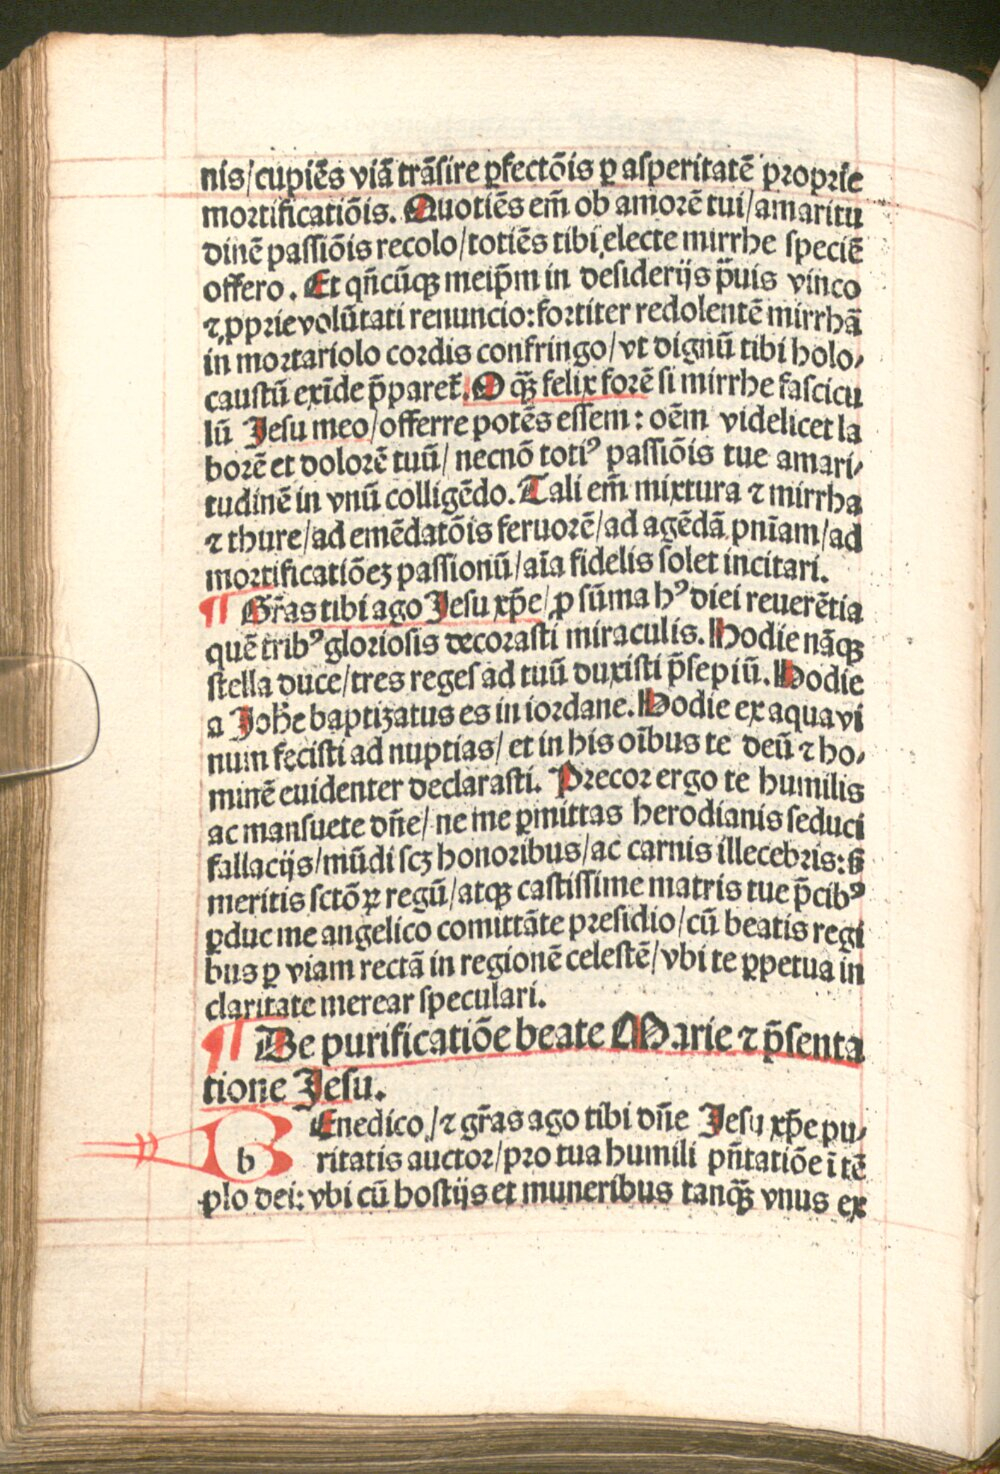 nis/cupiēs viā trāsire ꝑfectōis ꝑ asperitatē proprie
mortificatiōis. Quotiēs em̄ ob amorē tui/amaritu
dinē passiōis recolo/totiēs tibi electe mirrhe speciē
offero. Et qn̄cūqꝫ meip̄m in desiderijs p̄uis vinco
⁊ ꝓprie volūtati renuncio: fortiter redolentē mirrhā
in mortariolo cordis confringo/vt dignū tibi holo⸗
caustū exīde p̄paret̄. O qꝫ̄ felix forē si mirrhe fascicu
lū Jesu meo/offerre potēs essem: oēm videlicet la
borē et dolorē tuū/ necnō totiꝰ passiōis tue amari⸗
tudinē in vnū colligēdo. Tali em̄ mixtura ⁊ mirrha
⁊ thure/ad emēdatōis feruorē/ad agēdā pn̄iam/ad
mortificatiōeꝫ passionū/aīa fidelis solet incitari.
¶ Gr̄as tibi ago Jesu xp̄e/ꝓ sūma hꝰ diei reuerētia
quē tribꝰ gloriosis decorasti miraculis. Hodie nāqꝫ
stella duce/tres reges ad tuū duxisti p̄sepiū. Hodie
a Joh̄e baptizatus es in iordane. Hodie ex aqua vi
num fecisti ad nuptias/ et in his oībus te deū ⁊ ho⸗
minē euidenter declarasti. Precor ergo te humilis
ac mansuete dn̄e/ ne me ꝑmittas herodianis seduci
fallacijs/mūdi scꝫ honoribus/ac carnis illecebris: sꝫ
meritis sctōꝝ regū/atqꝫ castissime matris tue p̄cibꝰ
ꝑduc me angelico comittāte presidio/cū beatis regi
bus ꝑ viam rectā in regionē celestē/vbi te ꝑpetua in
claritate merear speculari.
¶ De purificatiōe beate Marie ⁊ p̄senta
tione Jesu.
BEnedico/⁊ gr̄as ago tibi dn̄e Jesu xp̄e pu⸗
b ritatis auctor/pro tua humili pn̄tatiōe ī tē
plo dei: vbi cū hostijs et muneribus tanqꝫ̄ vnus ex